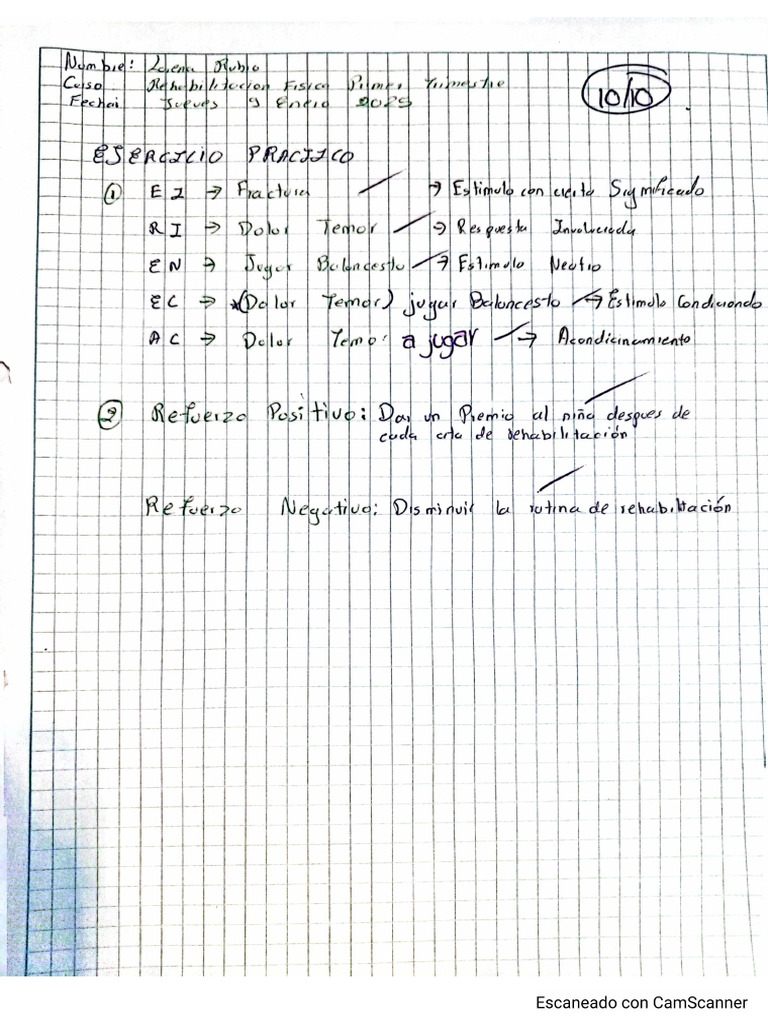 Nombre: Lorena Rubio
Curso Rehabilitacion Fisica Primer Trimestre
Fecha: Jueves 9 Enero 2025
10/10
EJERCICIO PRACTICO
① EI → Fractura → Estimulo con cierto Significado
RI → Dolor Temor → Respuesta Involucrada
EN → Jugar Baloncesto → Estimulo Neutro
EC → *(Dolor Temor) jugar Baloncesto → Estimulo Condicionado
AC → Dolor Temor a jugar → Acondicinamiento
② Refuerzo Positivo: Dar un Premio al niño despues de
cada cita de rehabilitación
Refuerzo Negativo: Disminuir la rutina de rehabilitación
Escaneado con CamScanner